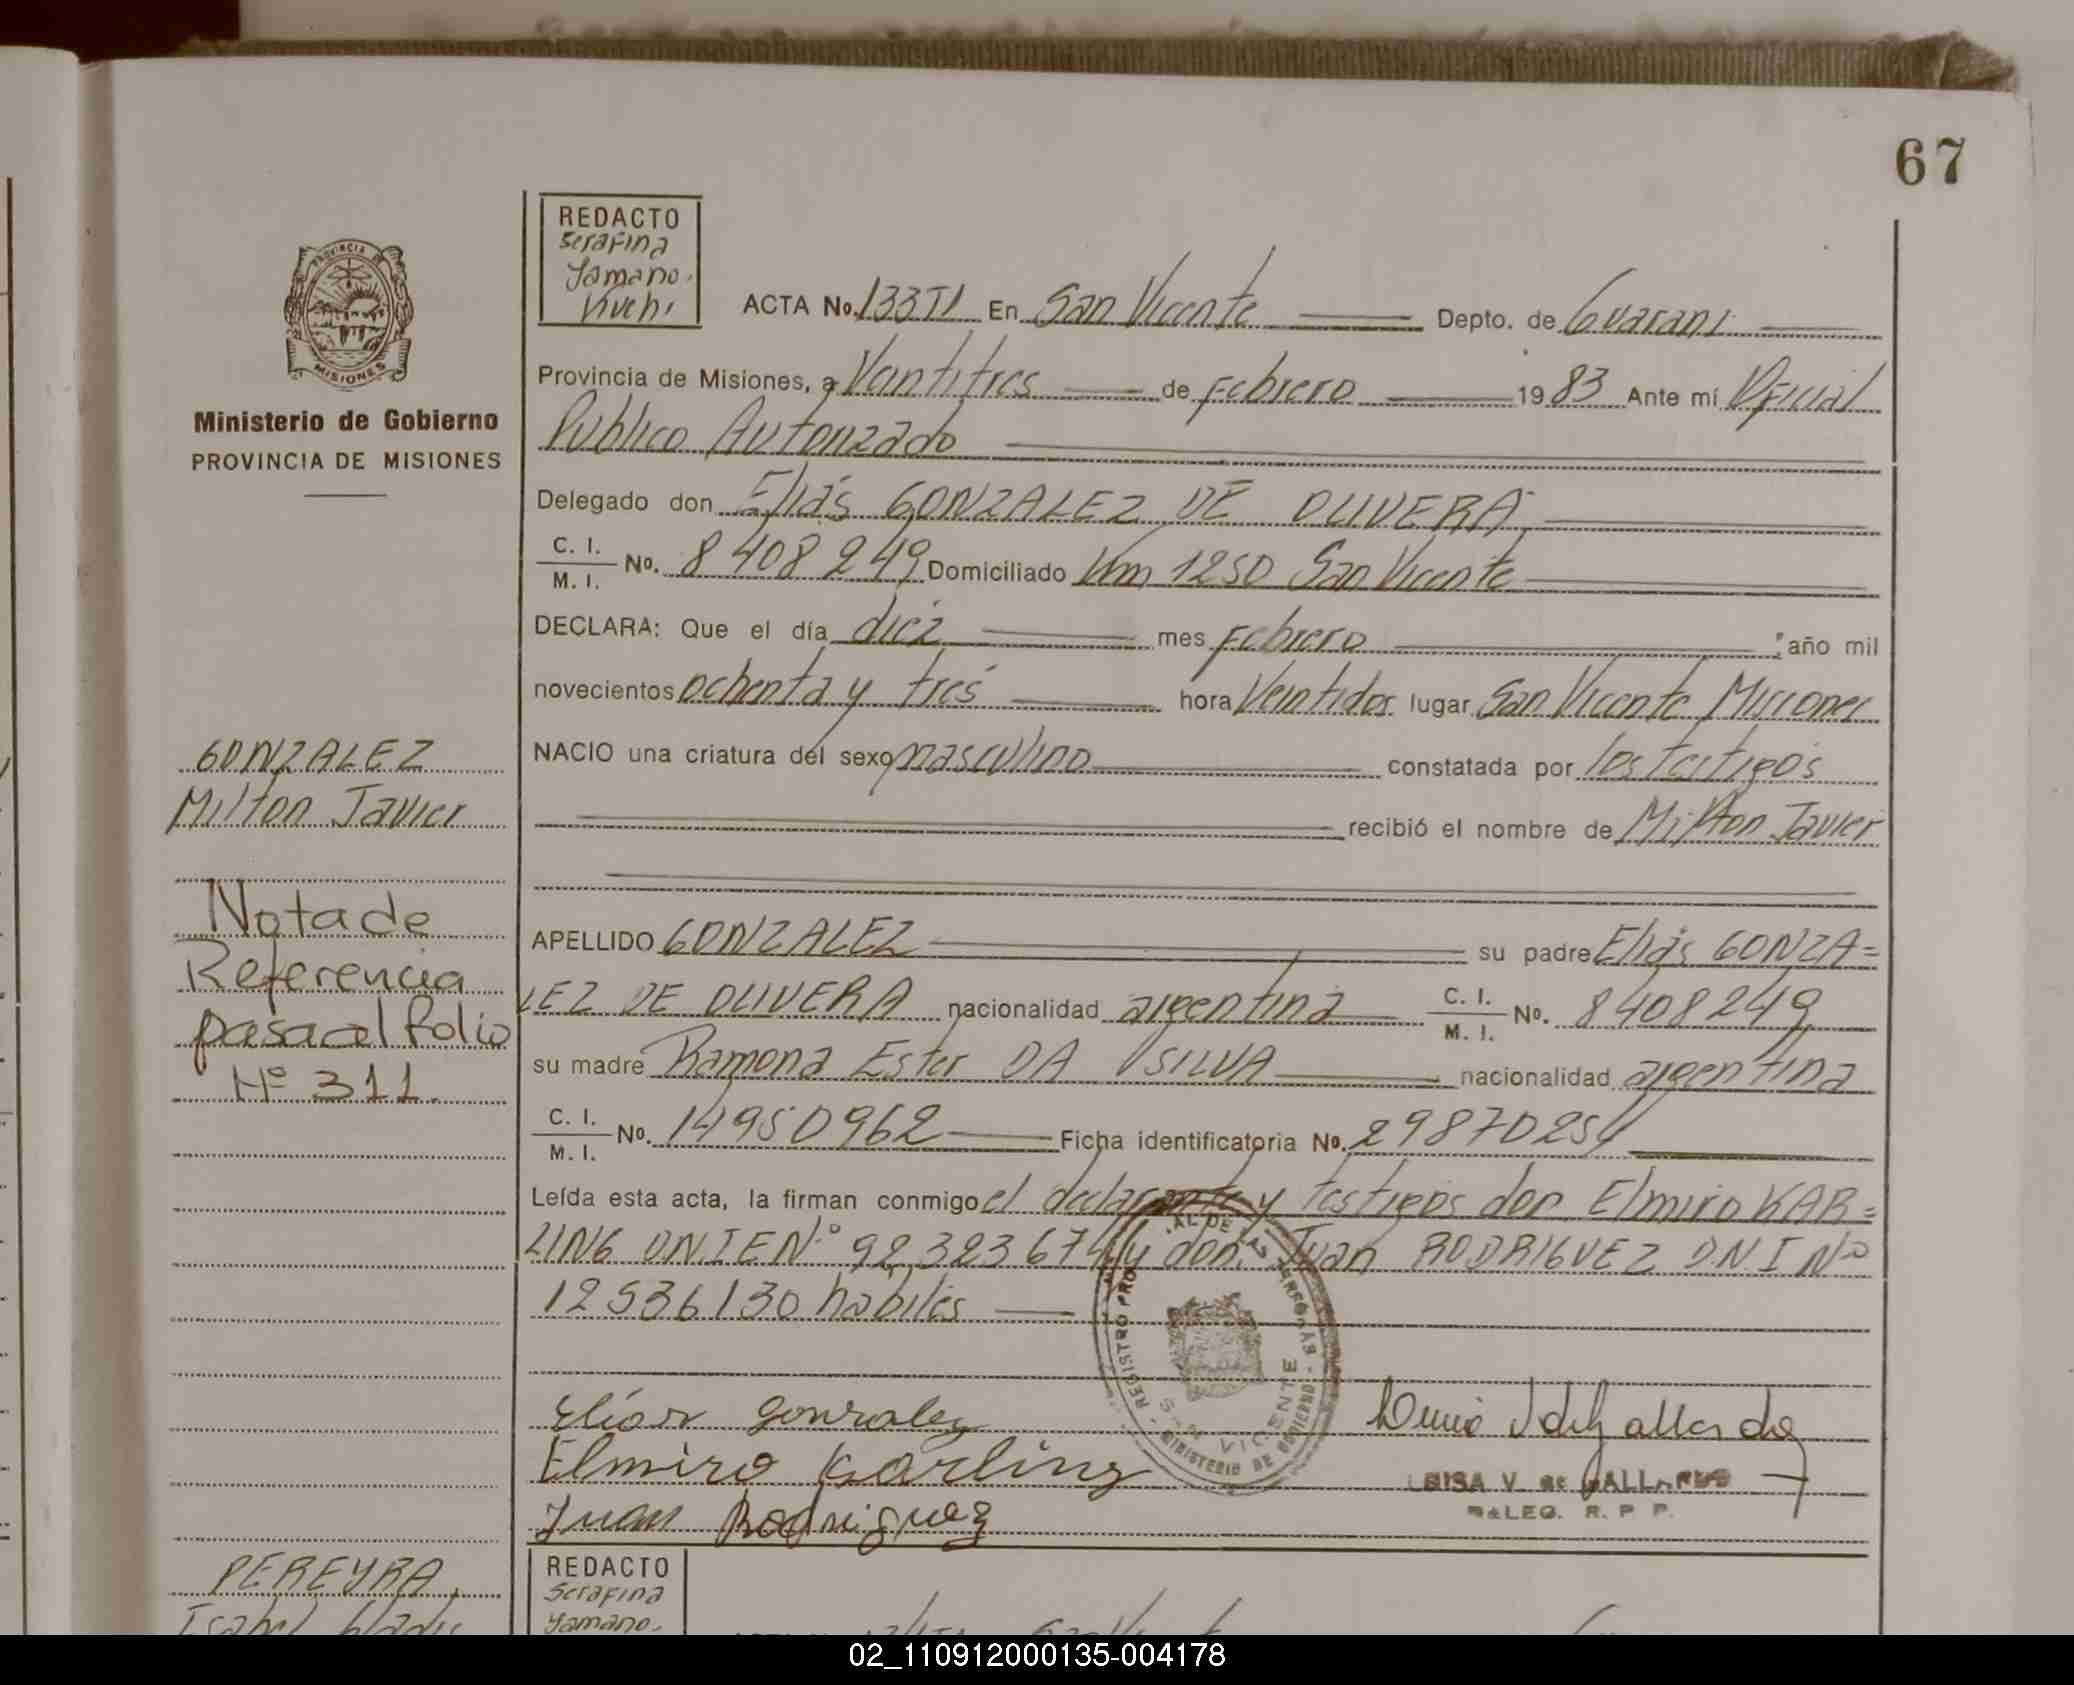 67
REDACTO
Serafina
Yamano.
Kiuchi
PROVINCIA DE
MISIONES
Ministerio de Gobierno
PROVINCIA DE MISIONES
ACTA No. 133T1 En San Vicente Depto. de Guarani
Provincia de Misiones, a Vantitres de Febrero 1983 Ante mí Oficial
Publico Autorizado
Delegado don Eliás GONZALEZ DE OLIVERA
C. I.
M. I. No. 8408249 Domiciliado Km 1250 San Vicente
DECLARA: Que el día diéz mes Febrero : año mil
novecientos ochenta y trés hora Veintidos lugar San Vicente Misiones
NACIO una criatura del sexo masculino constatada por los testigos
recibió el nombre de Milton Javier
GONZALEZ
Milton Javier
Nota de
Referencia
pasa al folio
Nº 311.
APELLIDO GONZALEZ su padre Eliás GONZA=
LEZ DE OLIVERA nacionalidad argentina C. I.
M. I. No. 8408249
su madre Ramona Ester DA SILVA nacionalidad argentina
C. I.
M. I. No. 14950962 Ficha identificatoria No. 29870254
Leída esta acta, la firman conmigo el declarante y testigos don Elmiro KAR=
LING D.N.I E Nº 92.323674 y don. Juan RODRIGUEZ D.N.I Nº
12536130 habiles
REGISTRO PRO AL DE LAS PERSONAS - SAN VICENTE - MINISTERIO DE GOBIERNO
Elias Gonzalez
Elmiro Karling
Juan Rodriguez
LUISA V. de GALLARDO
DELEG. R. P P.
PEREYRA
Isabel Gladis
REDACTO
Serafina
Yamano.
02_110912000135-004178